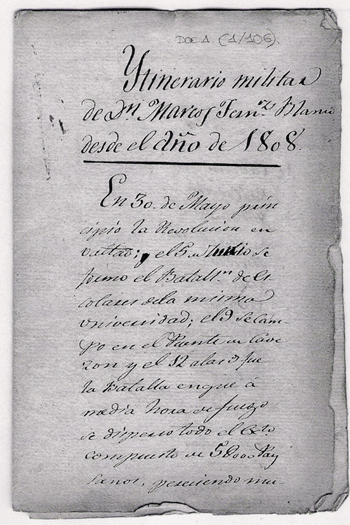 DOC 1 (1/106)
Ytinerario militar
de Dn Marcos Fernz Blanco
desde el Año de 1808.
En 30 de Mayo prin
cipio la Revolucion en
Vallad; y el 5 de Junio se
formo el Batalln de Es
colares de la misma
Universidad; el 9 se cam-
po en el Puente de Cave
zon y el 12 a las 9 fue
la Batalla en que a
media hora de fuego
se disperso todo el Exto
compuesto de 5000 Pay
sanos, pereciendo mu-